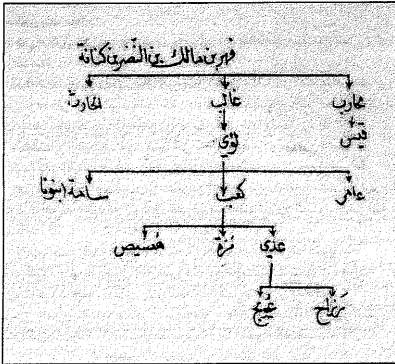 فهر بن مالك بن النضر بن كنانة
محارب غالب الحارث
قيس لؤي
عامر كعب سامة ابنونا
عدي مُرّة هُصيص
رزاح عويج